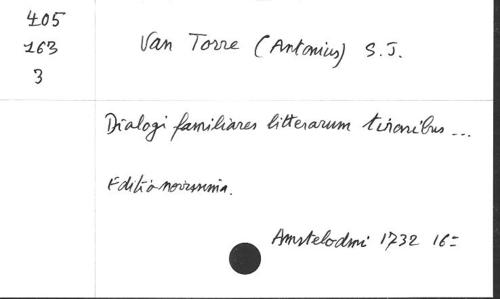 405
163
3
Van Torre (Antonius) S.J.
Dialogi familiares litterarum tironibus ...
Editio novissima.
Amstelodmi 1732 16=